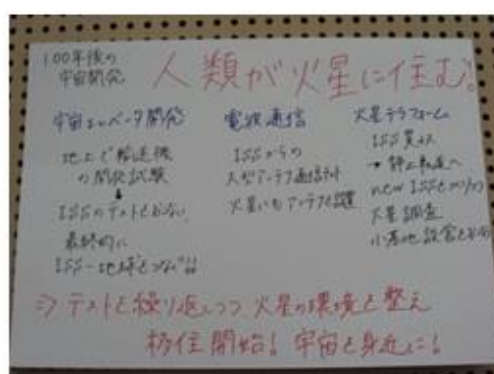 100年後の
宇宙開発
人類が火星に住む。
宇宙エレベータ開発
地上で輸送後
の開発試験
↓
ISSのテストをおこない
最終的に
ISS-地球をつなぐ!!
電波通信
ISSからの
大型アンテナ通信
火星にもアンテナを設置
火星テラフォーム
ISS
→静止軌道へ
new ISSをつくり
火星調査
小基地設営をおこなう
⇒テストを繰り返しつつ 火星の環境を整え
移住開始! 宇宙を身近に!